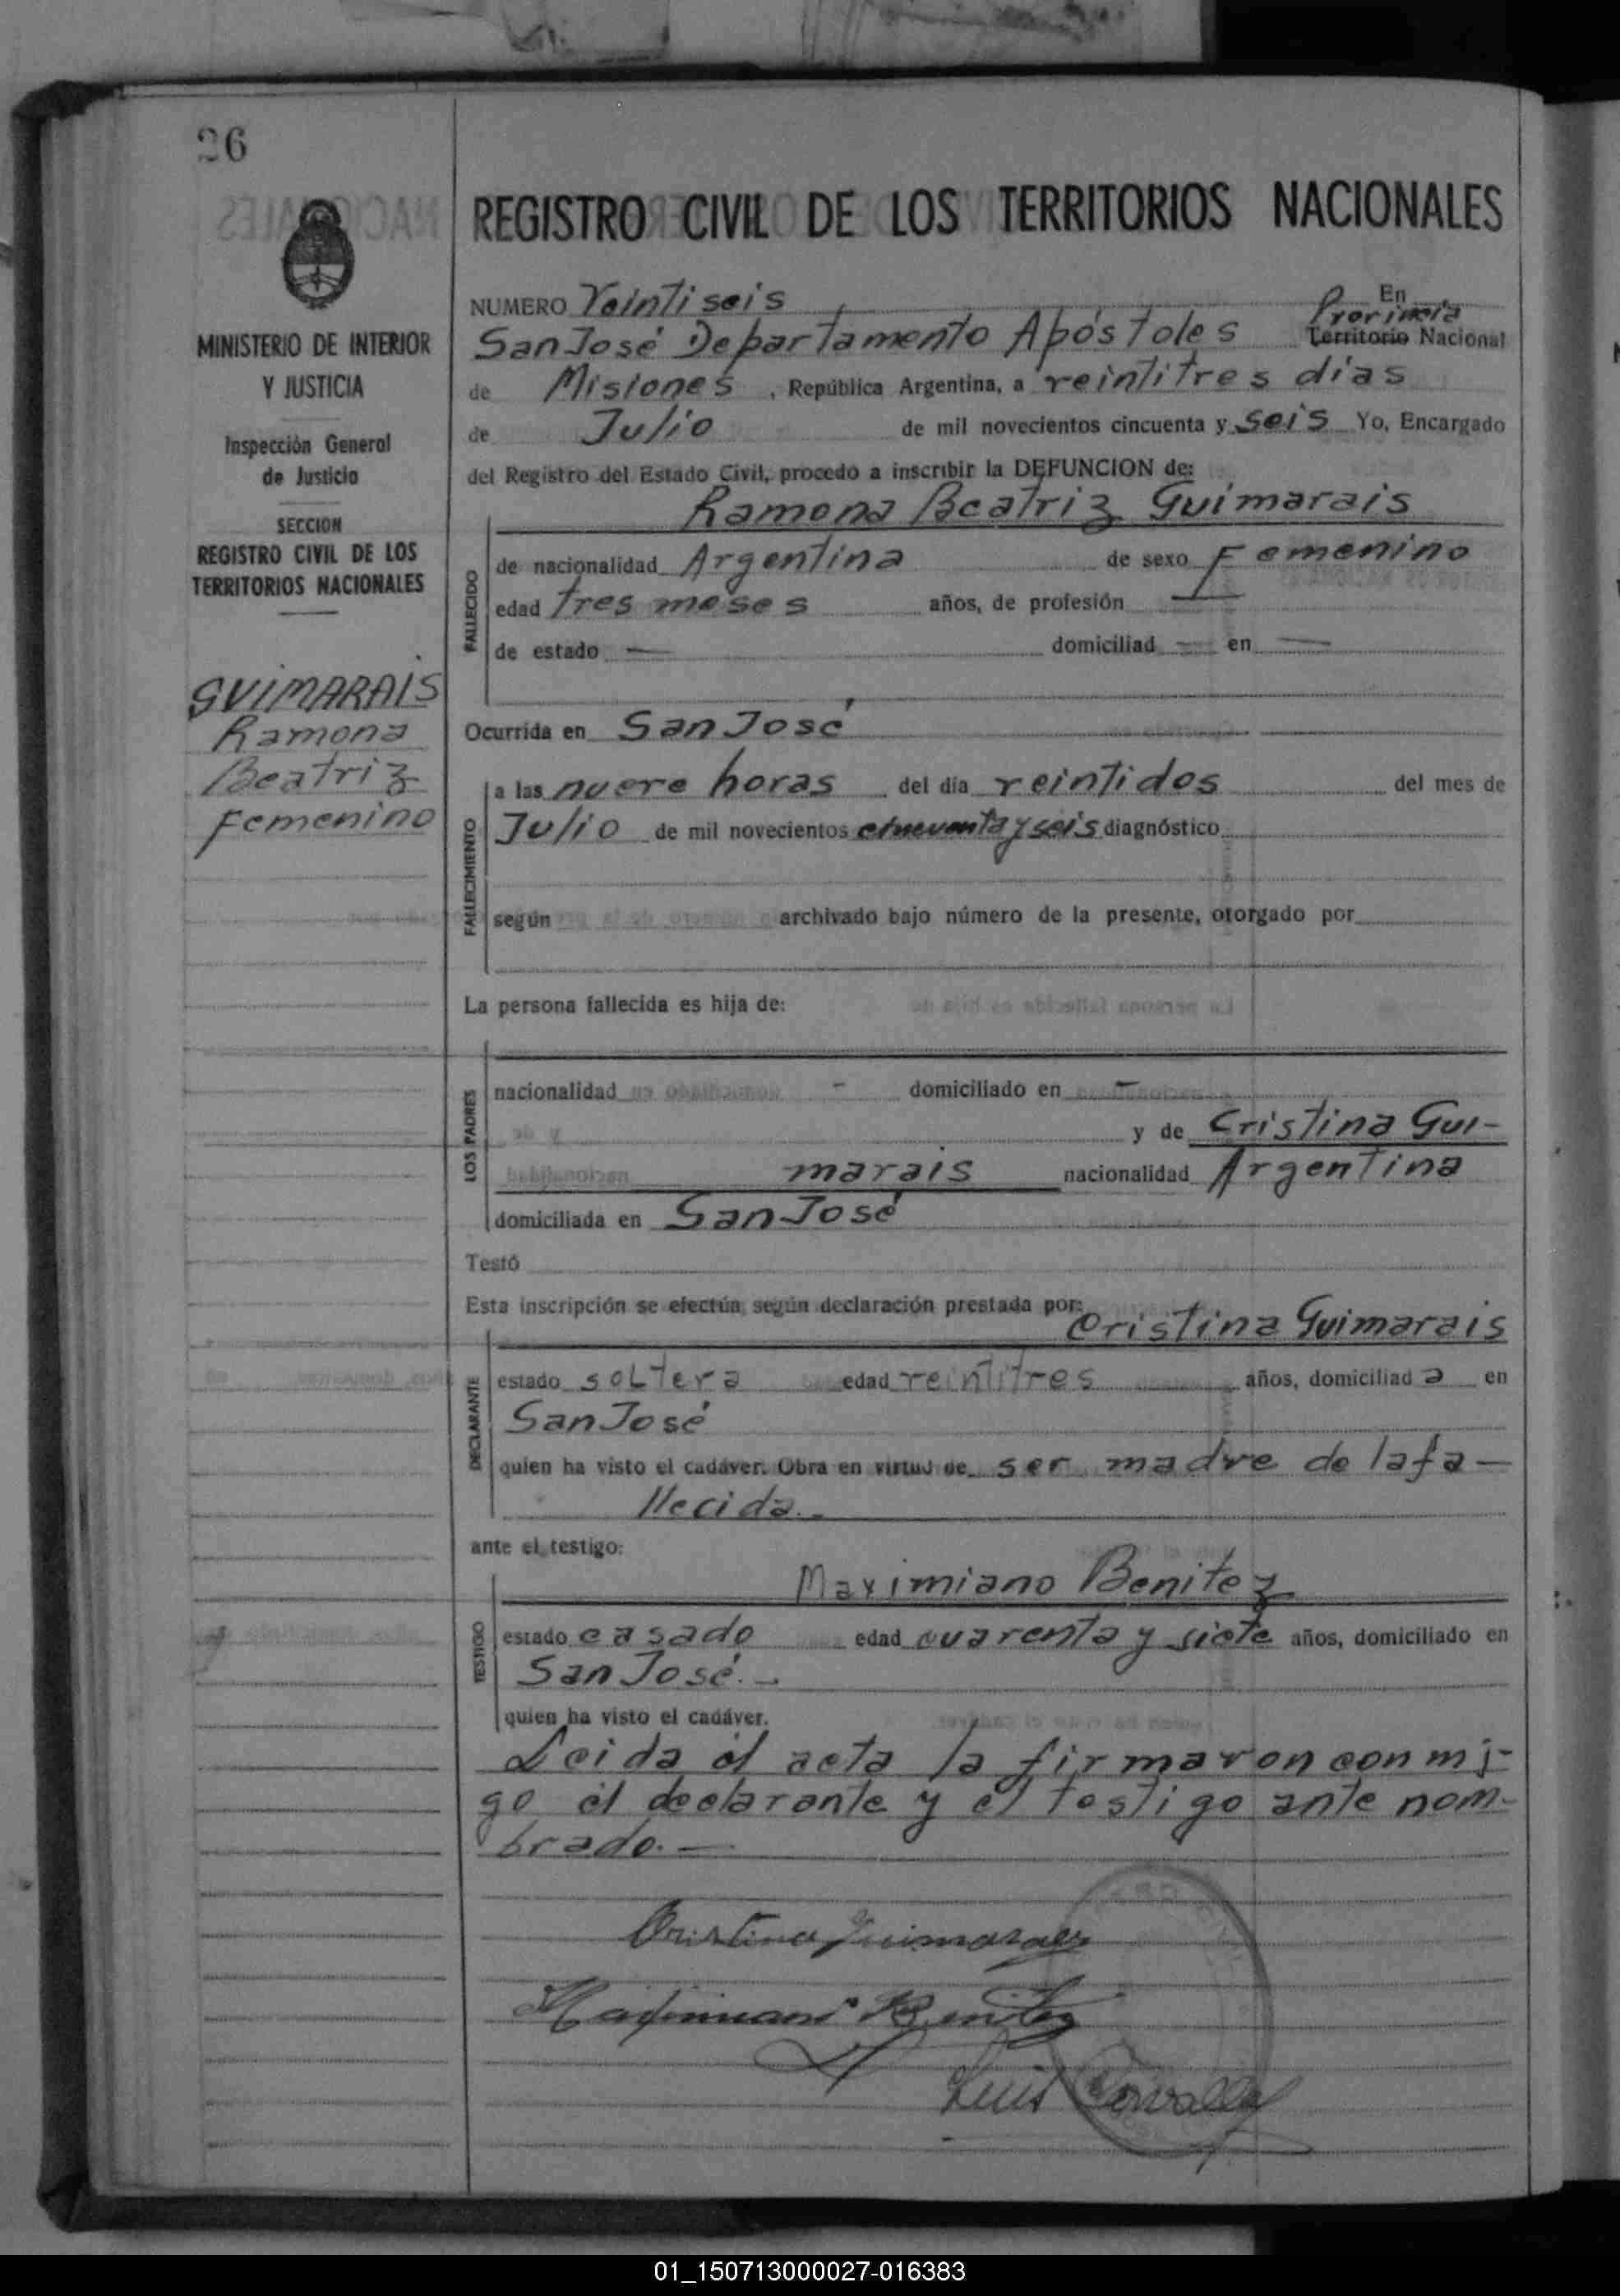 26
REGISTRO CIVIL DE LOS TERRITORIOS NACIONALES
MINISTERIO DE INTERIOR
Y JUSTICIA
Inspección General
de Justicia
SECCION
REGISTRO CIVIL DE LOS
TERRITORIOS NACIONALES
GUIMARAIS
Ramona
Beatriz
Femenino
NUMERO Veintiseis En
Provincia
San José Departamento Apóstoles Territorio Nacional
de Misiones, República Argentina, a veintitres días
de Julio de mil novecientos cincuenta y seis Yo, Encargado
del Registro del Estado Civil, procedo a inscribir la DEFUNCION de:
Ramona Beatriz Guimarais
FALLECIDO
de nacionalidad Argentina de sexo Femenino
edad tres meses años, de profesión —
de estado — domiciliad — en —
Ocurrida en San José
FALLECIMIENTO
a las nueve horas del día veintidos del mes de
Julio de mil novecientos cincuenta y seis diagnóstico
según archivado bajo número de la presente, otorgado por
La persona fallecida es hija de:
LOS PADRES
nacionalidad - domiciliado en -
y de Cristina Gui-
marais nacionalidad Argentina
domiciliada en San José
Testó
Esta inscripción se efectúa según declaración prestada por:
Cristina Guimarais
DECLARANTE
estado soltera edad veintitres años, domiciliad a en
San José
quien ha visto el cadáver. Obra en virtud de ser madre de la fa-
llecida.-
ante el testigo:
Maximiano Benitez
TESTIGO
estado casado edad cuarenta y siete años, domiciliado en
San José.-
quien ha visto el cadáver.
Leida el acta la firmaron conmi-
go el declarante y el testigo ante nom-
brado.—
Cristina Guimaraes
Maximiano Benitez
Luis
01_150713000027-016383